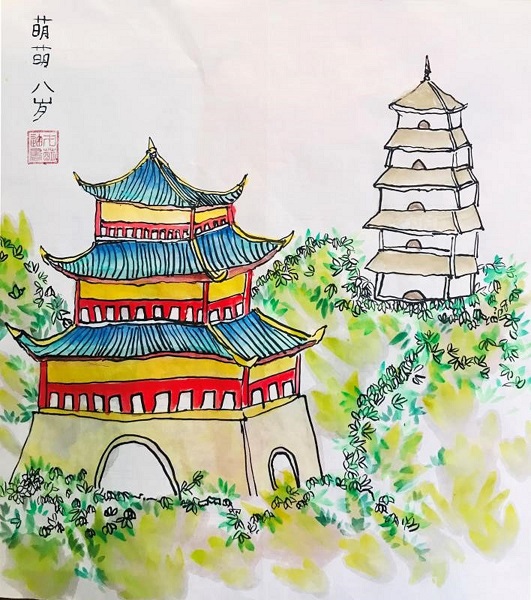 萌萌 八岁